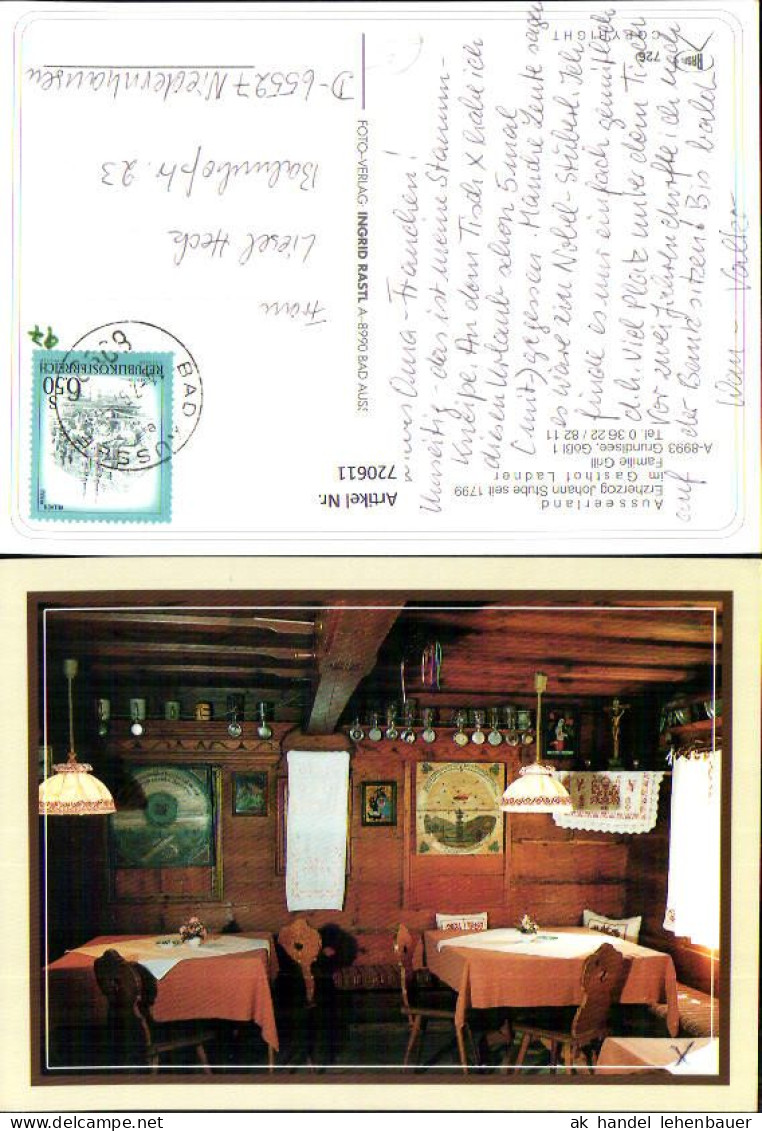 Ausseerland
Erzherzog Johann Stube seit 1799
im Gasthof Ladner
Familie Grill
A-8993 Grundlsee, Gößl 1
Tel. 0 36 22 / 82 11
Artikel Nr.
720611
Anna-Franchen!
Umseitig - das ist meine Stamm-
Kneipe. An dem Tisch X habe ich
diesen Urlaub schon 5 mal
gegessen. Manche Leute sagen
es wäre ein Nobel-Stüberl. Ich
finde es nur einfach gemütlich
d.h. viel Platz unter dem Tisch
Vor zwei Jahren durfte ich noch
auf der Bank sitzen! Bis bald
FOTO-VERLAG INGRID RASTL A-8990 BAD AUSS
COPYRIGHT
726
S 6.50
REPUBLIK ÖSTERREICH
BAD AUSSEE
97
Frau
Liesel Heck
Bahnhofstr. 23
D-65527 Niedernhausen
X
ak handel lehenbauer